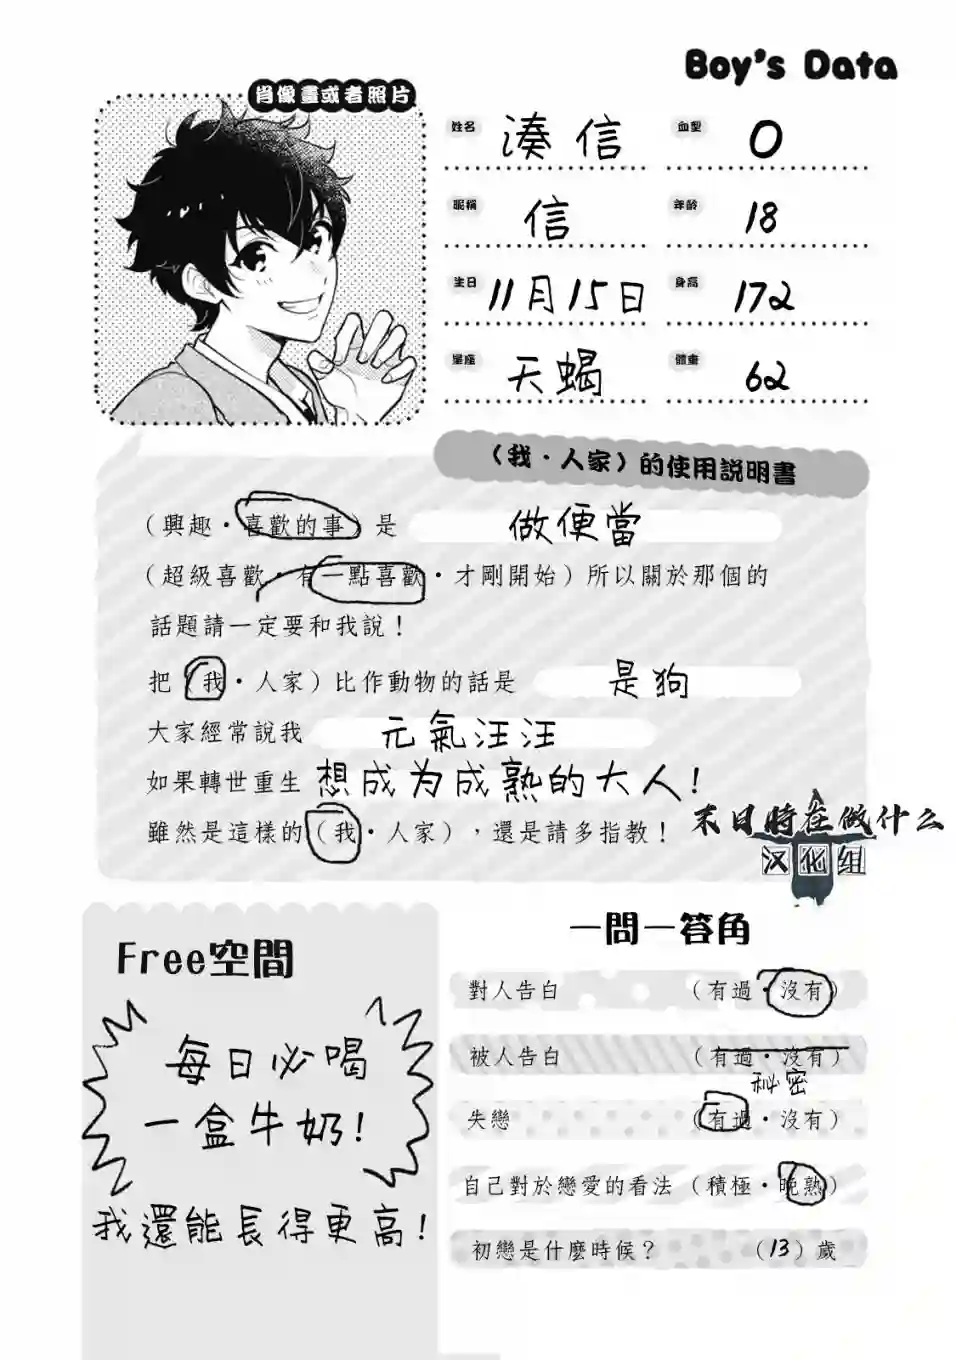 Boy's Data
肖像畫或者照片
姓名 湊信
血型 O
昵稱 信
年齡 18
生日 11月15日
身高 172
星座 天蝎
體重 62
（我·人家）的使用説明書
（興趣·喜歡的事）是 做便當
（超級喜歡·有一點喜歡·才剛開始）所以關於那個的
話題請一定要和我說！
把（我·人家）比作動物的話是 是狗
大家經常說我 元氣汪汪
如果轉世重生 想成为成熟的大人！
雖然是這樣的（我·人家），還是請多指教！
末日時在做什么
汉化组
Free空間
每日必喝
一盒牛奶！
我還能長得更高！
一問一答角
對人告白 （有過·沒有）
被人告白 （有過·沒有）
秘密
失戀 （有過·沒有）
自己對於戀愛的看法 （積極·晚熟）
初戀是什麼時候？ （13）歲